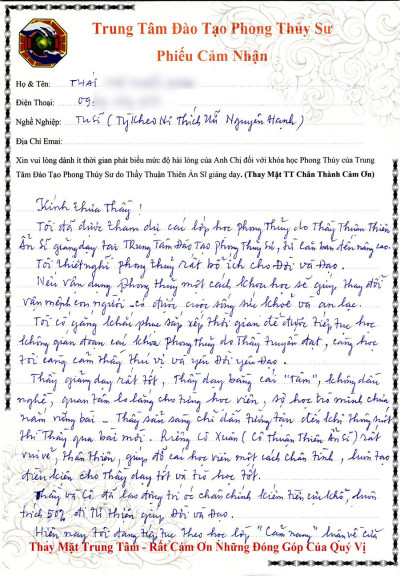 Trung Tâm Đào Tạo Phong Thủy Sư
Phiếu Cảm Nhận
Họ & Tên: THÁI
Điện Thoại: 09
Nghề Nghiệp: Tu sĩ (Tỳ Kheo Ni Thích Nữ Nguyên Hạnh)
Địa Chỉ Emai:
Xin vui lòng dành ít thời gian phát biểu mức độ hài lòng của Anh Chị đối với khóa học Phong Thủy của Trung
Tâm Đào Tạo Phong Thủy Sư do Thầy Thuận Thiên Ẩn Sĩ giảng dạy. (Thay Mặt TT Chân Thành Cảm Ơn)
Kính thưa Thầy!
Tôi đã được tham dự các lớp học phong thủy do Thầy Thuận Thiên
Ẩn Sĩ giảng dạy tại Trung Tâm Đào Tạo Phong Thủy Sư, từ căn bản đến nâng cao.
Tôi thiết nghĩ phong thủy rất bổ ích cho Đời và Đạo.
Nếu vận dụng phong thủy một cách khoa học sẽ giúp thay đổi
vận mệnh con người có được cuộc sống sức khỏe và an lạc.
Tôi cố gắng khắc phục sắp xếp thời gian để được tiếp tục học
không gián đoạn các khóa phong thủy do Thầy truyền đạt, càng học
tôi càng cảm thấy thú vị và yêu Đời yêu Đạo.
Thầy giảng dạy rất tốt, Thầy dạy bằng cái "Tâm", không dấu
nghề, quan tâm lo lắng cho từng học viên, sợ học trò mình chưa
nắm vững bài - Thầy sẵn sàng chỉ dẫn từng tận đến khi thông suốt
thì Thầy qua bài mới. Riêng Cô Xuân (Cô Thuận Thiên Ẩn Sĩ) rất
vui vẻ, thân thiện, giúp đỡ các học viên một cách chân tình, luôn tạo
điều kiện cho Thầy dạy tốt và trò học tốt.
Thầy và Cô đã lao động trí óc chân chính kiếm tiền cực khổ, luôn
trích 50% đi từ thiện giúp Đời và Đạo.
Hiện nay tôi đang tiếp tục theo học lớp "Cẩm nang" luận về của
Thay Mặt Trung Tâm - Rất Cảm Ơn Những Đóng Góp Của Quý Vị